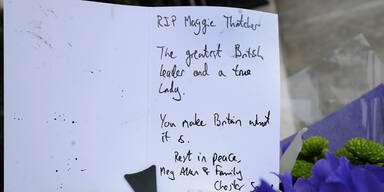 RIP Maggie Thatcher
The greatest British
leader and a true
Lady.
You make Britain what
it is.
Rest in peace,
Meg Alan & Family
Chester